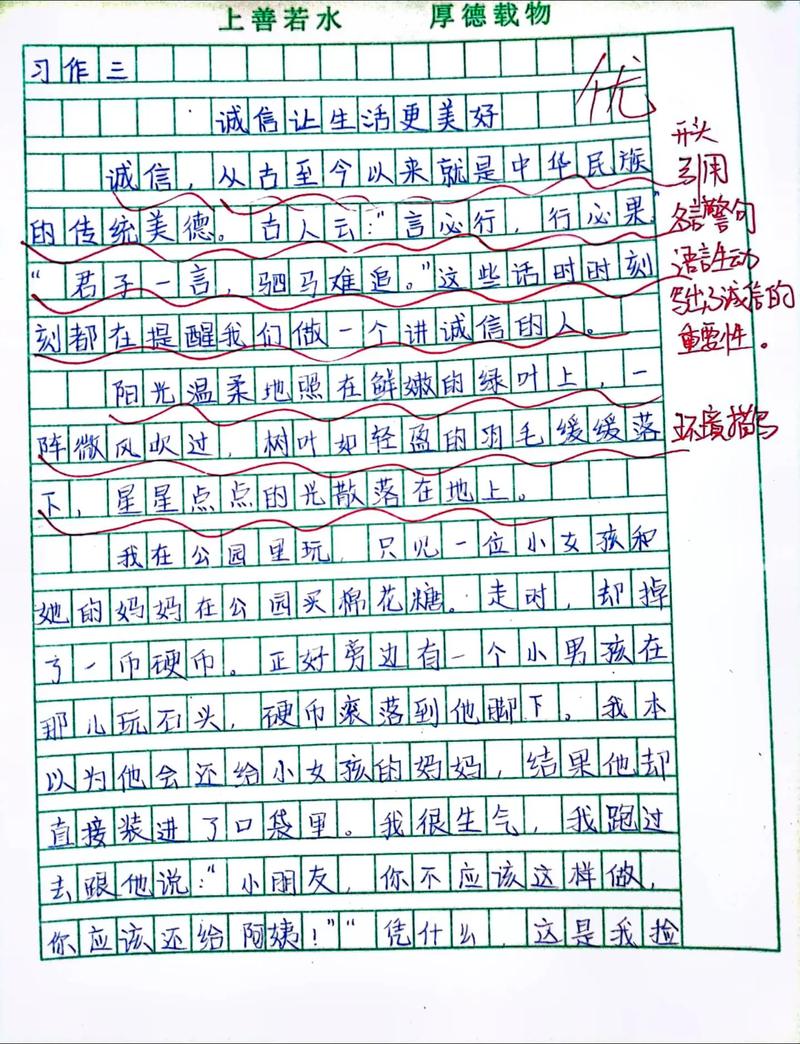 上善若水 厚德载物
习作三
优
诚信让生活更美好
诚信，从古至今以来就是中华民族
的传统美德。古人云："言必行，行必果"
"君子一言，驷马难追。"这些话时时刻
刻都在提醒我们做一个讲诚信的人。
阳光温柔地照在鲜嫩的绿叶上，一
阵微风吹过，树叶如轻盈的羽毛缓缓落
下，星星点点的光散落在地上。
我在公园里玩，只见一位小女孩和
她的妈妈在公园买棉花糖。走时，却掉
了一币硬币。正好旁边有一个小男孩在
那儿玩石头，硬币滚落到他脚下。我本
以为他会还给小女孩的妈妈，结果他却
直接装进了口袋里。我很生气，我跑过
去跟他说："小朋友，你不应该这样做，
你应该还给阿姨！""凭什么，这是我捡
开头
引用
名言警句
语言生动
写出了诚信的
重要性。
环境描写